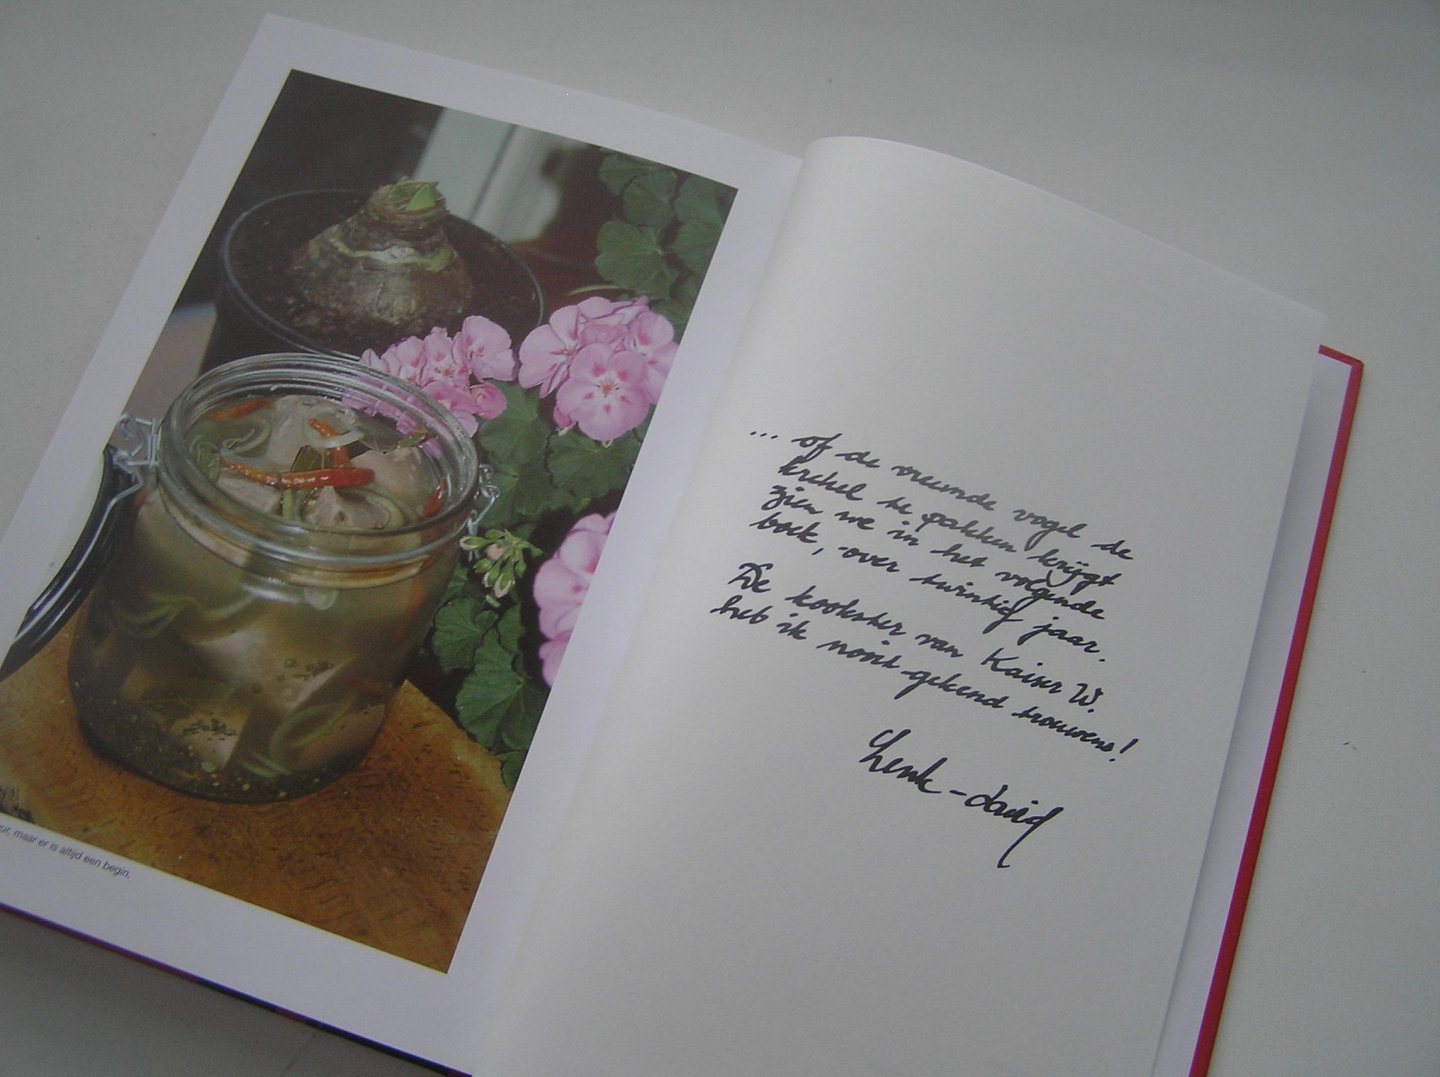 ur, maar er is altijd een begin.
... of de vreemde vogel de
krekel te pakken krijgt
zien we in het volgende
boek, over twintig jaar.
De kookster van Kaiser W.
heb ik nooit gekend trouwens!
Henk-david